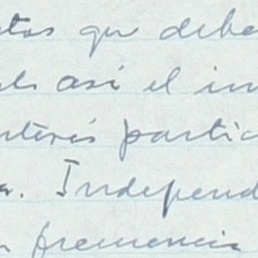 que debe
así el in
interés partic
Independ
frecuencia